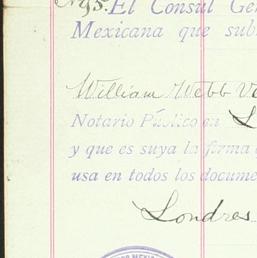 Nº 95. El Consul Gen
Mexicana que sub
William Webb Ve
Notario Público en L
y que es suya la firma
usa en todos los docume
Londres